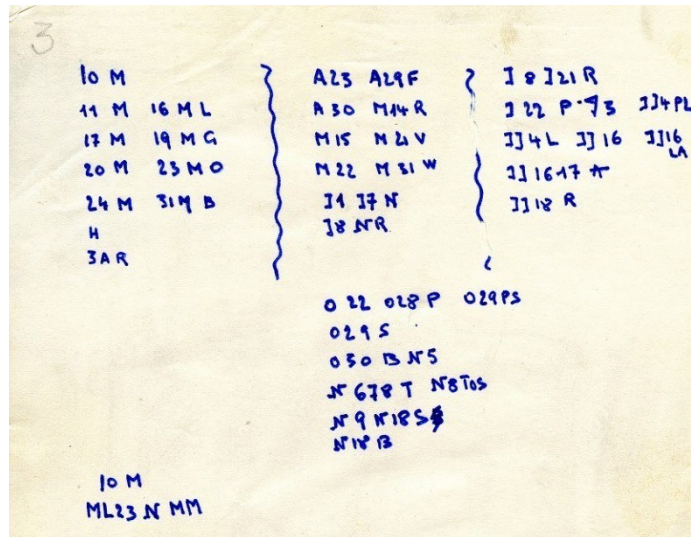 3
10 M
11 M 16 M L
17 M 19 M G
20 M 23 M O
24 M 31 M B
H
3 A R
A23 A29F
A 30 M14 R
M15 M 21 V
M22 M 31 W
J1 J7 N
J8 N R
J 8 J21 R
J 22 P J4PL
JJ4L JJ16 JJ16
LA
JJ 16 17 A
JJ 18 R
O 22 O28 P O29PS
O29 S
O30 B N5
N 678 T N8TOS
N 9 N18 S
N18 B
10 M
ML23 N MM